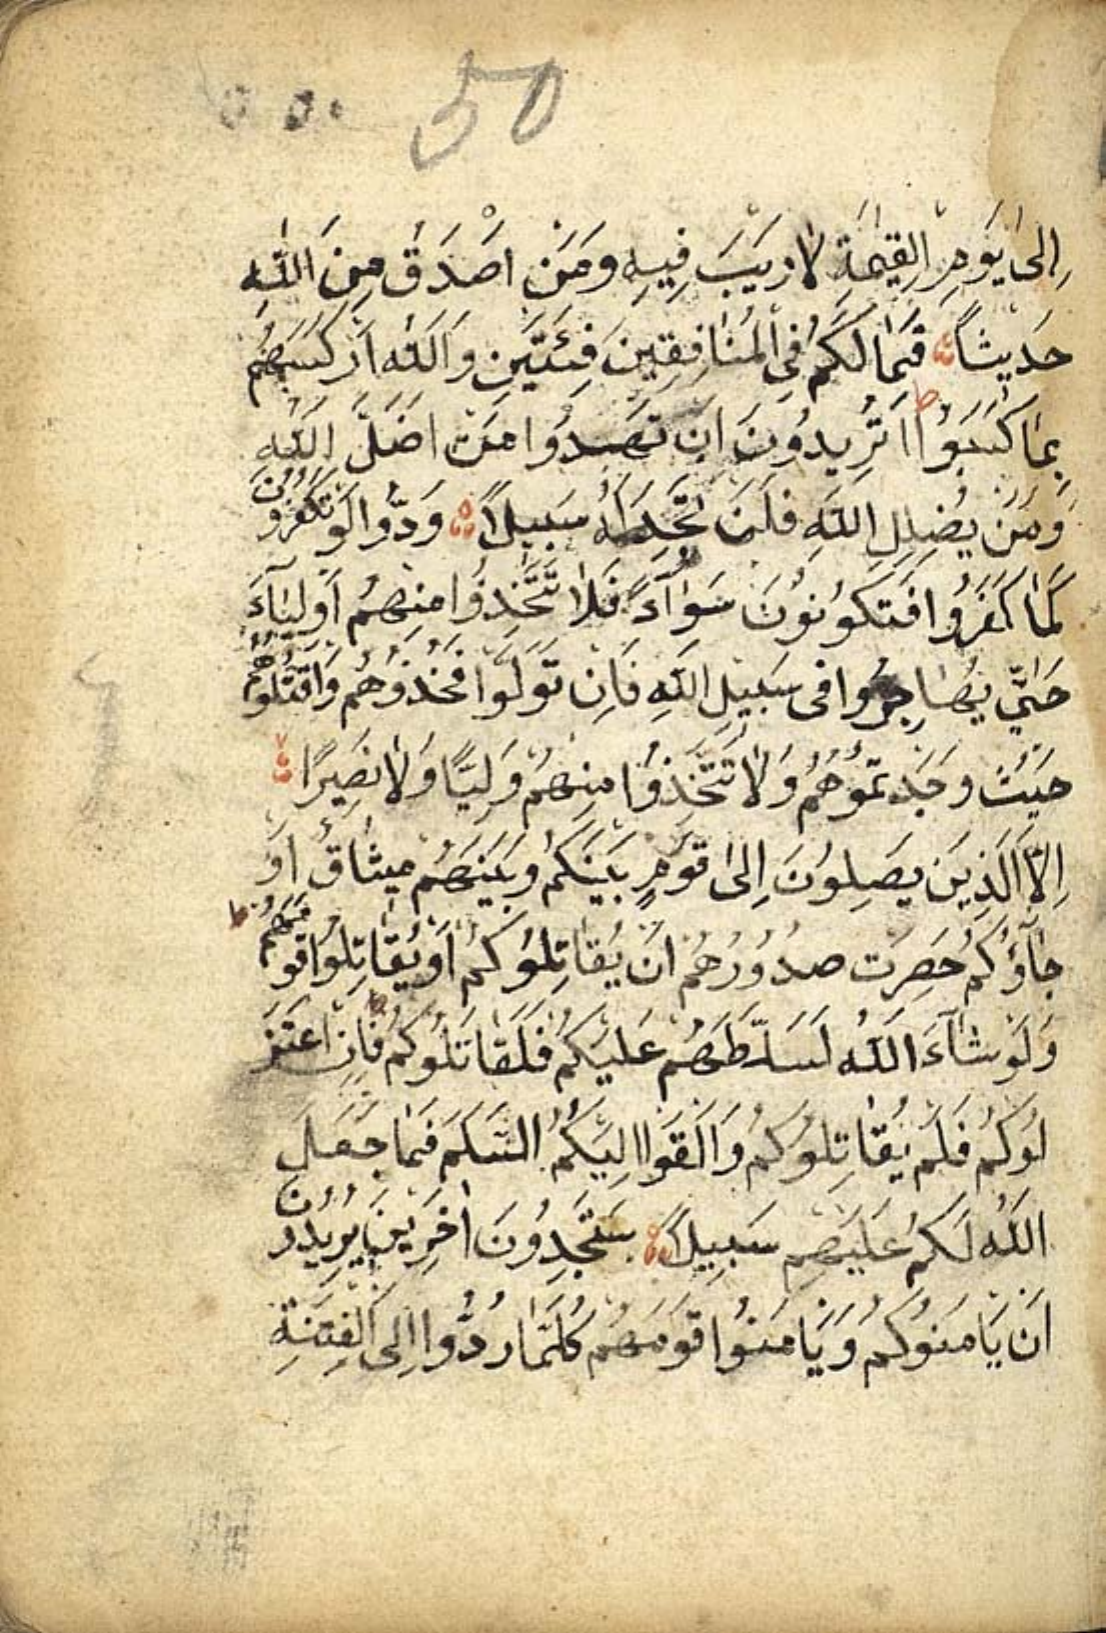 50
إِلىٰ يَوْمِ القِيٰمَةِ لَا رَيْبَ فِيهِ وَمَنْ اَصْدَقُ مِنَ اللّٰهِ
حَدِيثًا فَمَا لَكُمْ فِي المُنَافِقِينَ فِئَتَيْنِ وَاللّٰهُ اَرْكَسَهُمْ
بِمَا كَسَبُوا اَتُرِيدُونَ اَنْ تَهْدُوا مَنْ اَضَلَّ اللّٰهُ
وَمَنْ يُضْلِلِ اللّٰهُ فَلَنْ تَجِدَ لَهُ سَبِيلًا وَدُّوا لَوْ تَكْفُرُونَ
كَمَا كَفَرُوا فَتَكُونُونَ سَوَآءً فَلَا تَتَّخِذُوا مِنْهُمْ اَوْلِيَآءَ
حَتّٰى يُهَاجِرُوا فِى سَبِيلِ اللّٰهِ فَاِنْ تَوَلَّوْا فَخُذُوهُمْ وَاقْتُلُوهُمْ
حَيْثُ وَجَدْتُمُوهُمْ وَلَا تَتَّخِذُوا مِنْهُمْ وَلِيًّا وَلَا نَصِيرًا
اِلَّا الَّذِينَ يَصِلُونَ اِلىٰ قَوْمٍ بَيْنَكُمْ وَبَيْنَهُمْ مِيثَاقٌ اَوْ
جَآؤُكُمْ حَصِرَتْ صُدُورُهُمْ اَنْ يُقَاتِلُوكُمْ اَوْ يُقَاتِلُوا قَوْمَهُمْ
وَلَوْ شَآءَ اللّٰهُ لَسَلَّطَهُمْ عَلَيْكُمْ فَلَقَاتَلُوكُمْ فَاِنِ اعْتَزَ
لُوكُمْ فَلَمْ يُقَاتِلُوكُمْ وَاَلْقَوْا اِلَيْكُمُ السَّلَمَ فَمَا جَعَلَ
اللّٰهُ لَكُمْ عَلَيْهِمْ سَبِيلًا سَتَجِدُونَ اٰخَرِينَ يُرِيدُونَ
اَنْ يَاْمَنُوكُمْ وَيَاْمَنُوا قَوْمَهُمْ كُلَّمَا رُدُّوا اِلَى الْفِتْنَةِ